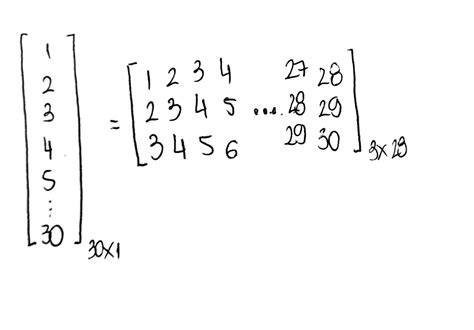 1
2
3
4
5
⋮
30
30x1
=
1 2 3 4 27 28
2 3 4 5 .... 28 29
3 4 5 6 29 30
3x28